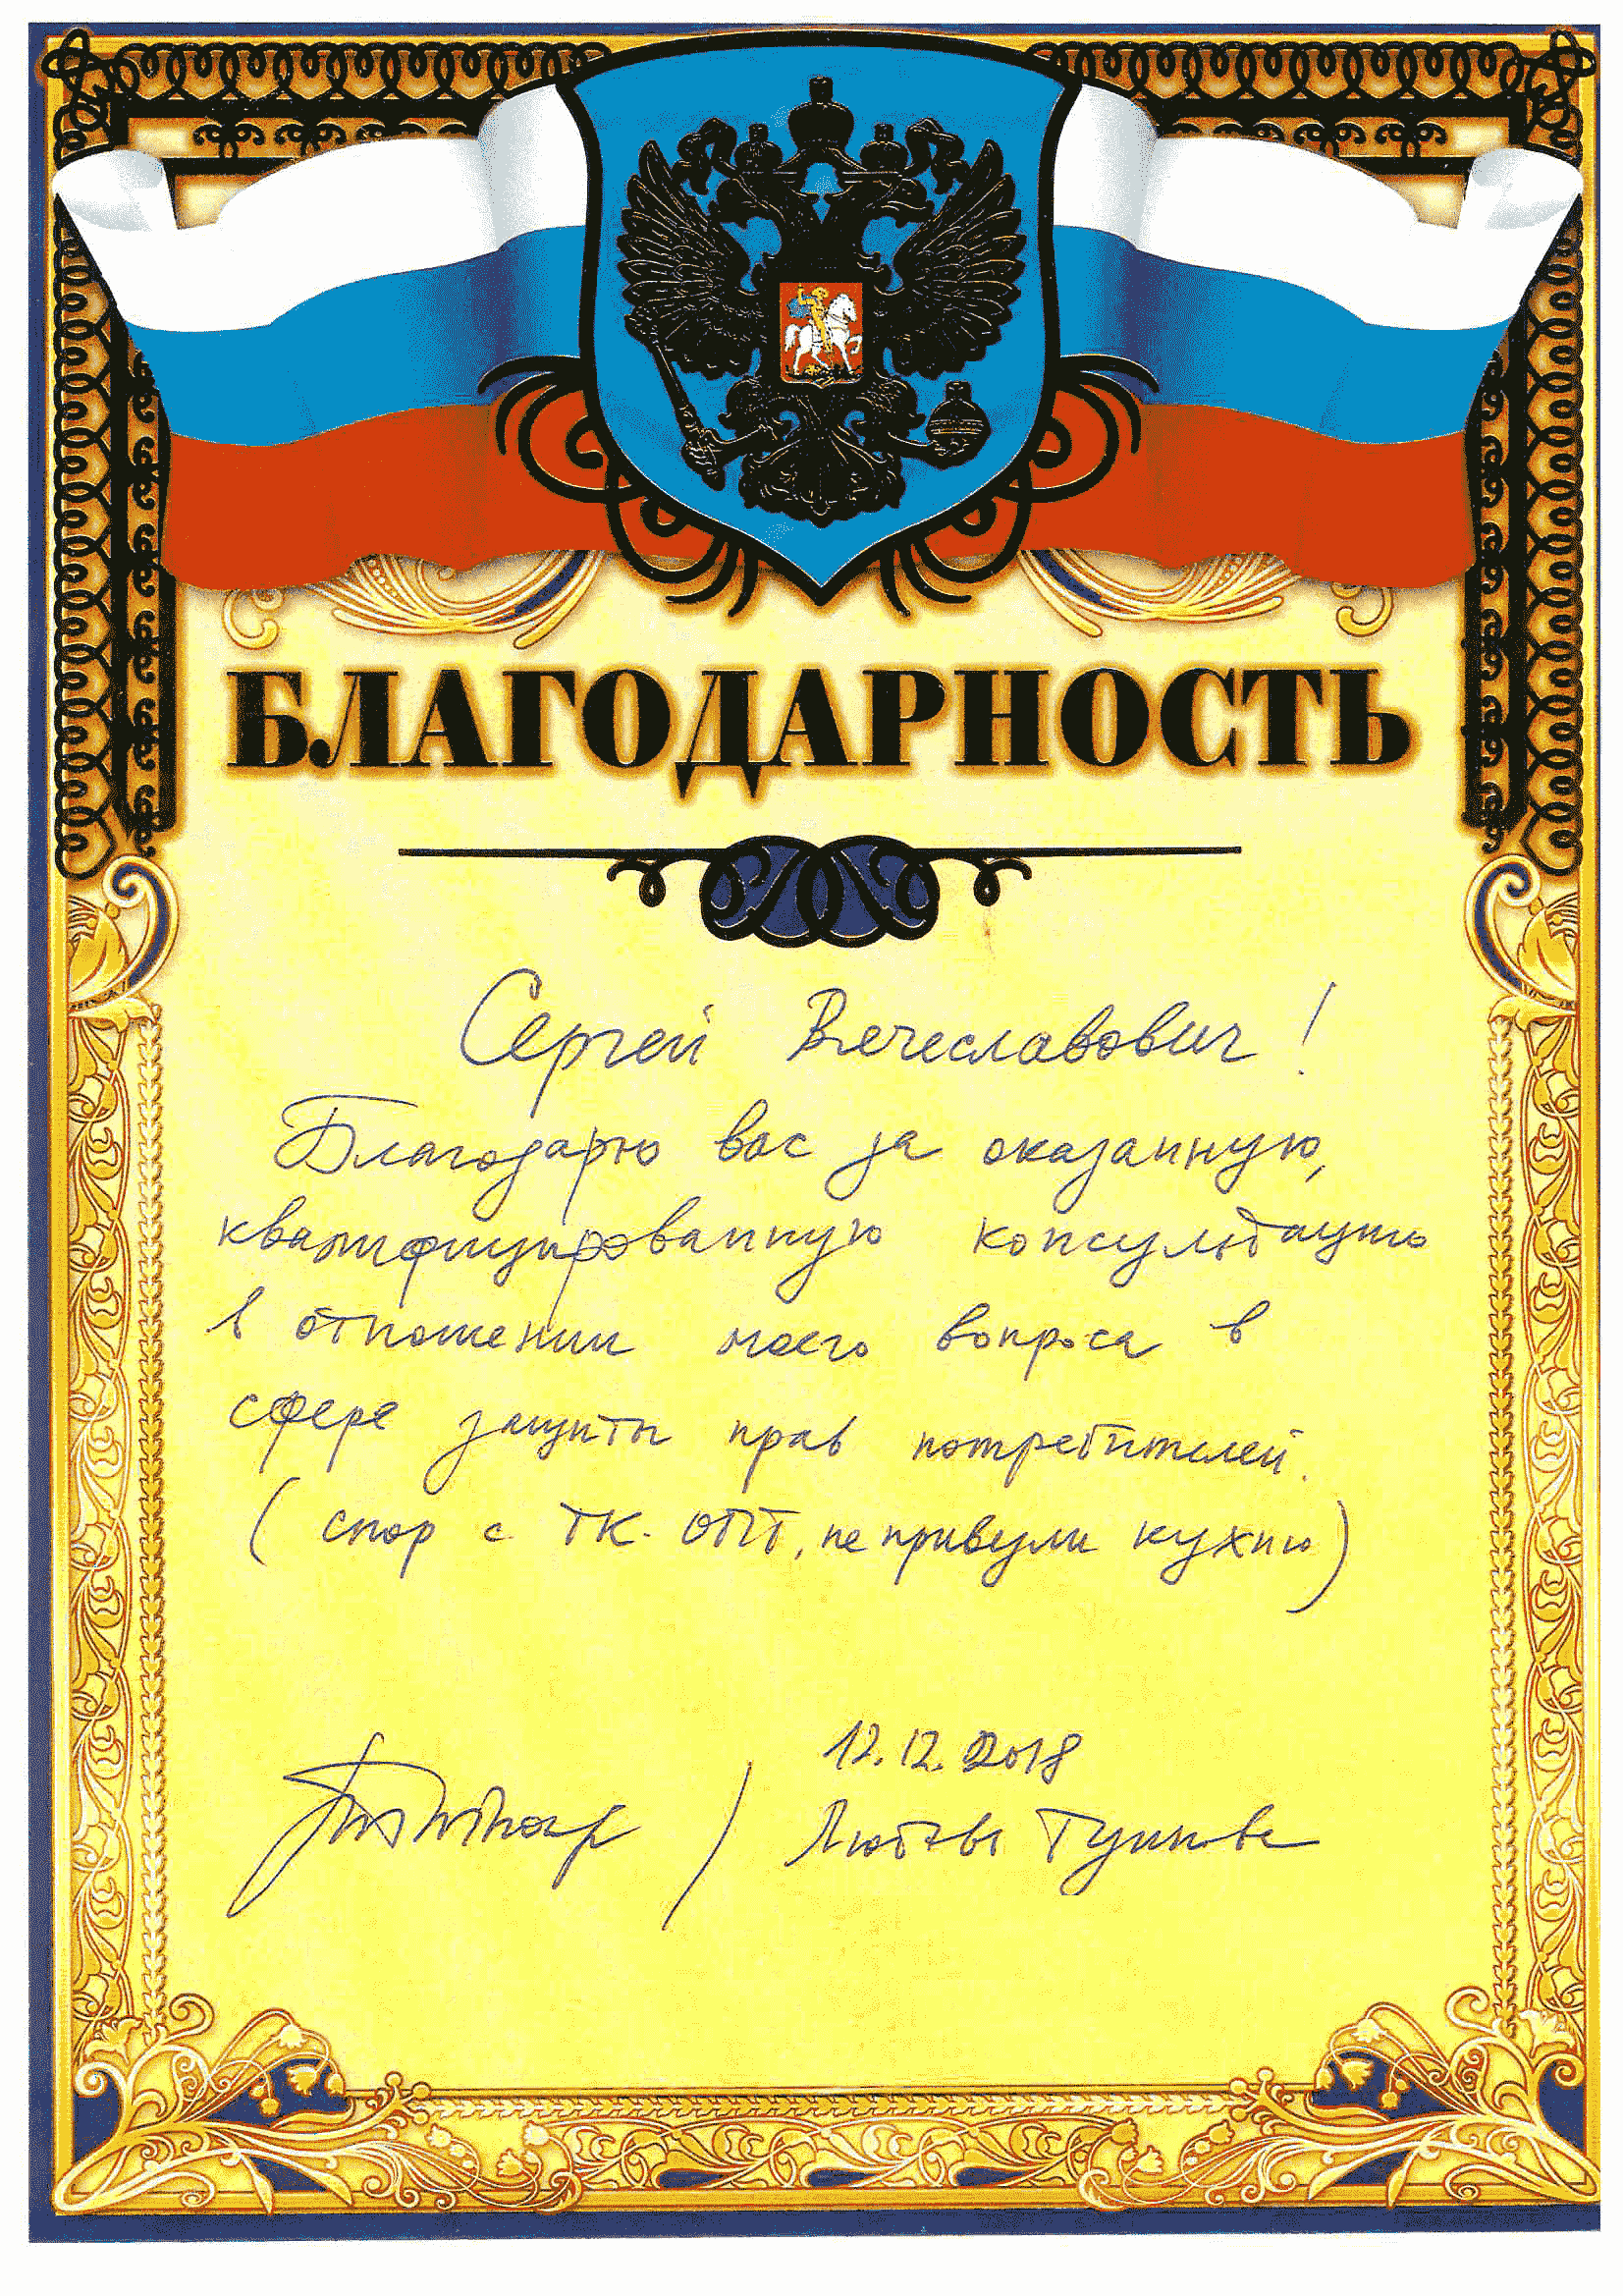 БЛАГОДАРНОСТЬ
Сергей Вячеславович!
Благодарю вас за оказанную,
квалифицированную консультацию
в отношении моего вопроса в
сфере защиты прав потребителей.
(спор с ТК. ОПТ, не привезли кухню)
12.12.2018
/ Любовь